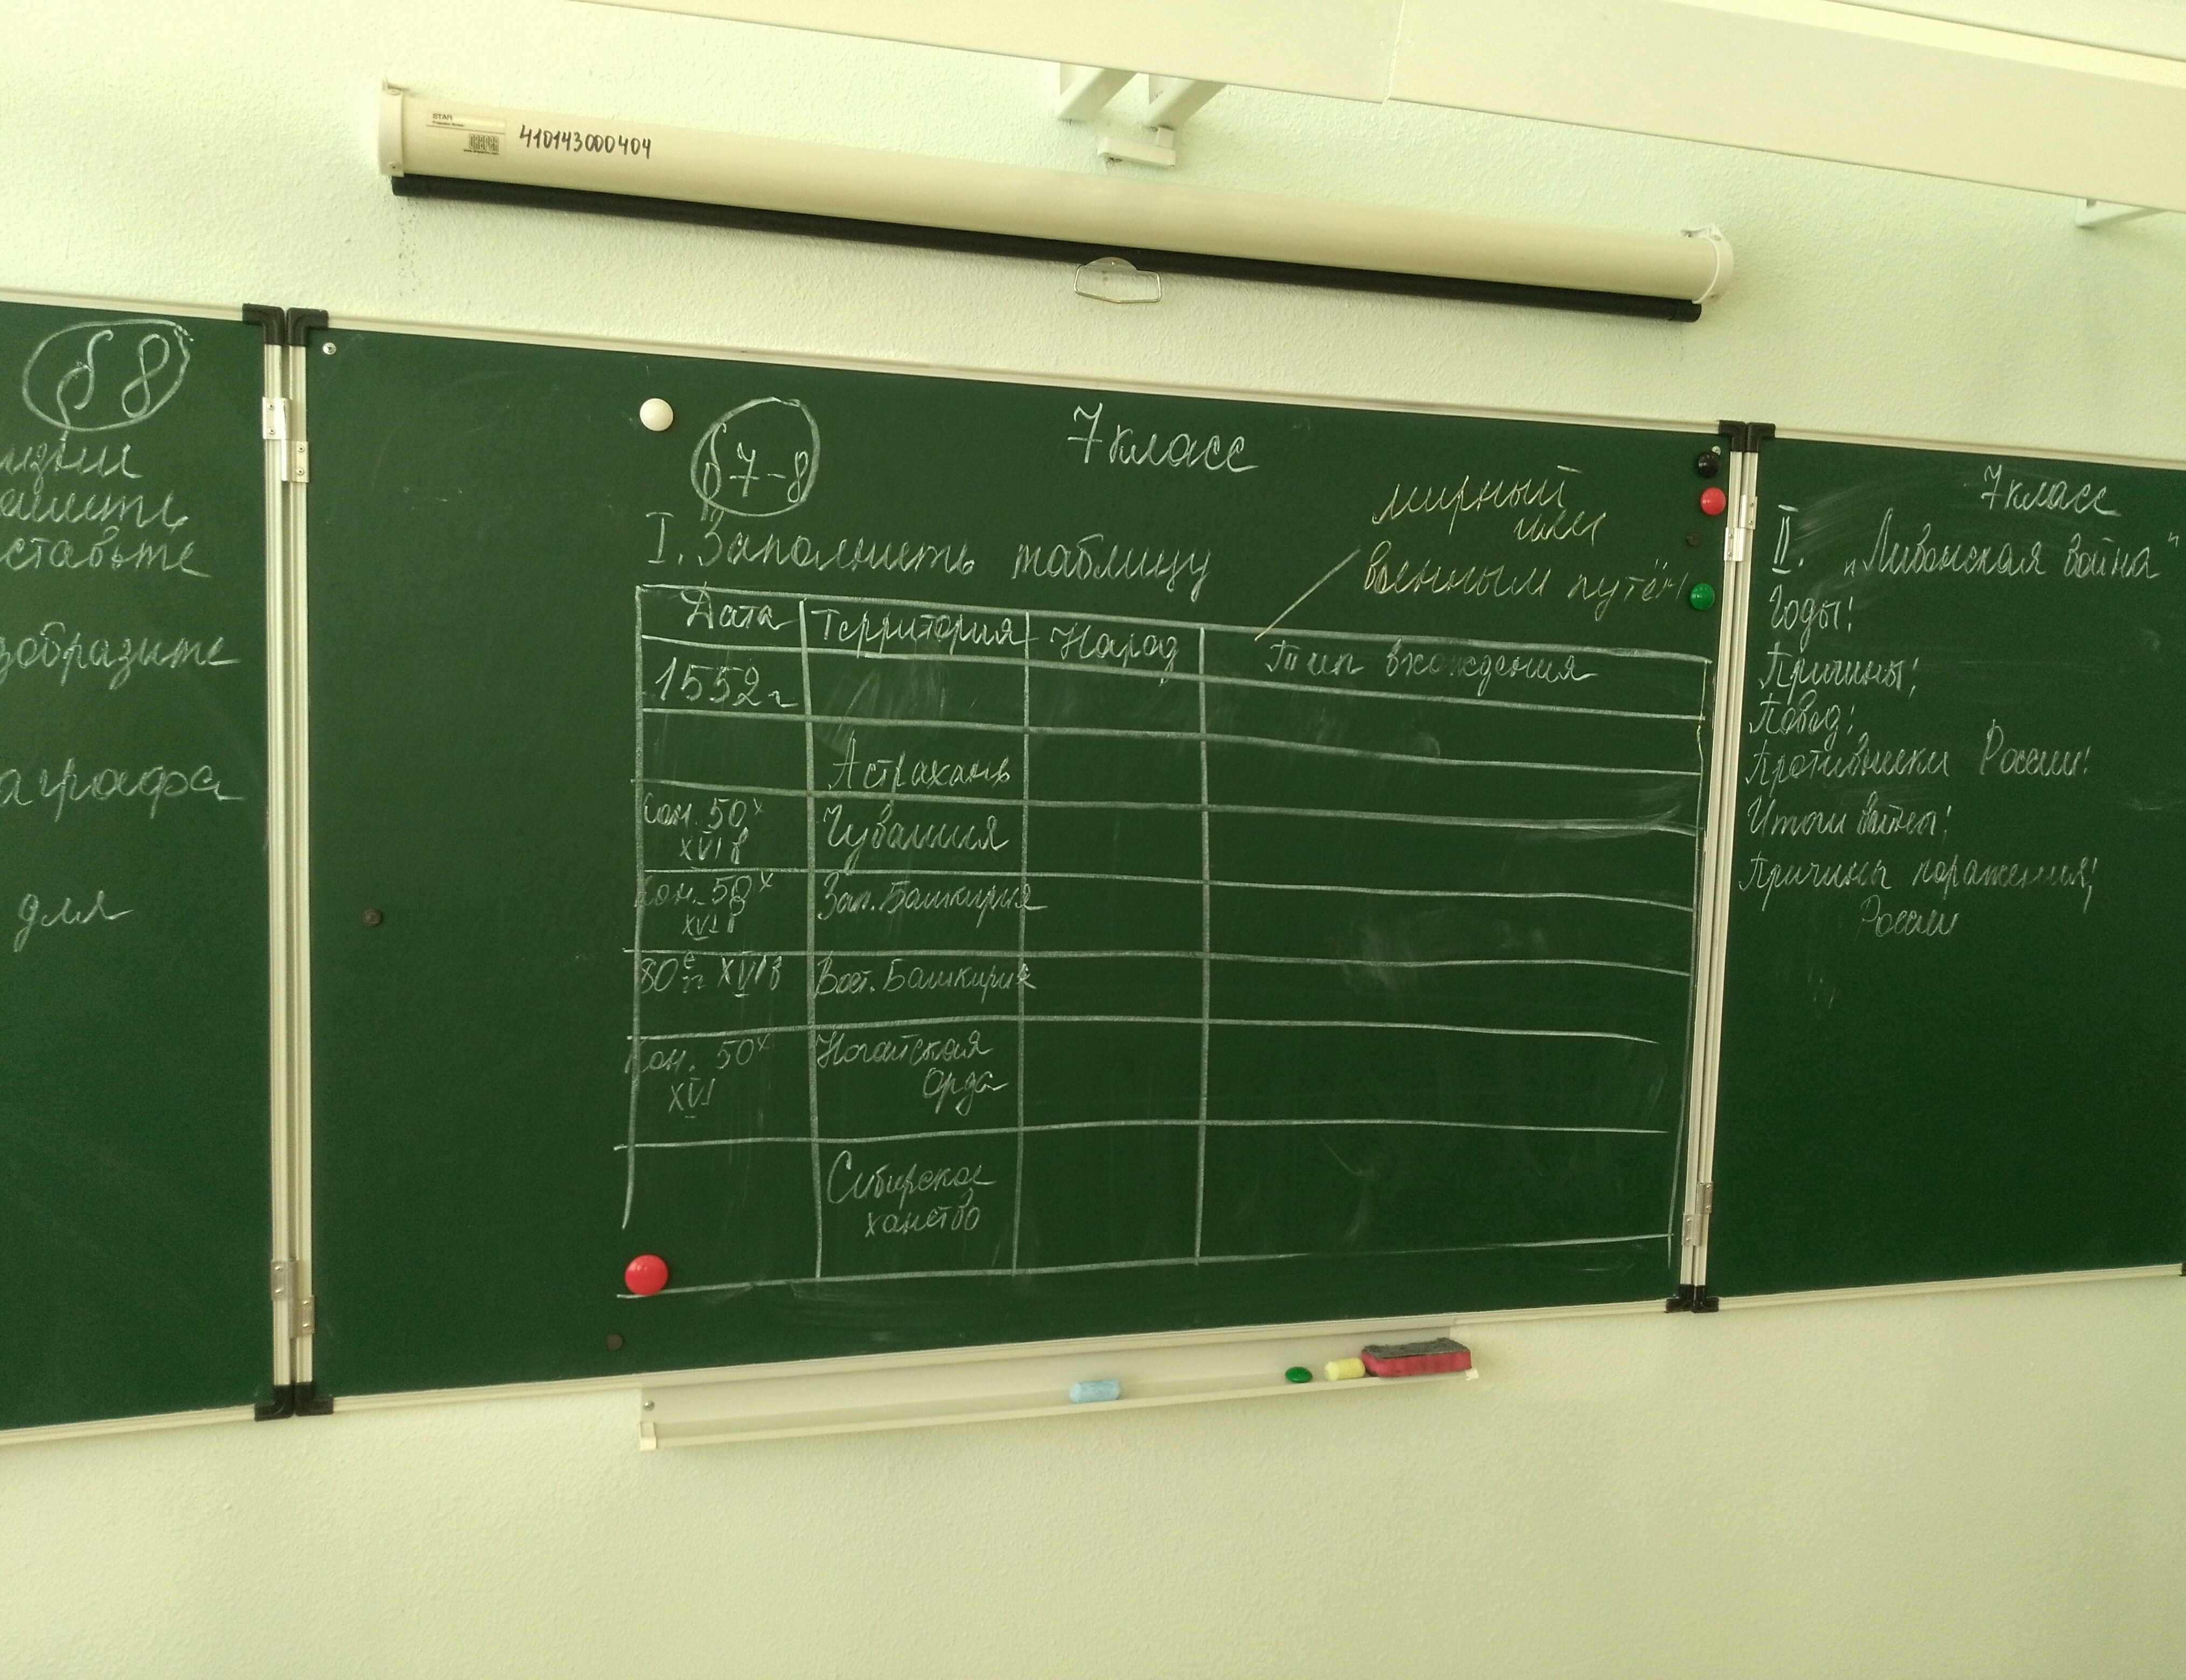 STAR
DRAPER
410143000404
§ 8
ставьте
зобразите
аграфа
для
§ 7-8
7 класс
I. Заполнить таблицу
мирный
или
военным путём
Дата Территория Народ Тип вхождения
1552 г
Астрахань
Кон. 50х Чувашия
XVI в
Кон. 50х Зап. Башкирия
XVI в
80е гг XVI в Вост. Башкирия
Кон. 50х Ногайская
XVI Орда
Сибирское
ханство
7 класс
II. „Ливонская война"
Годы:
Причины:
Повод:
Противники России:
Итоги войны:
Причины поражения:
России